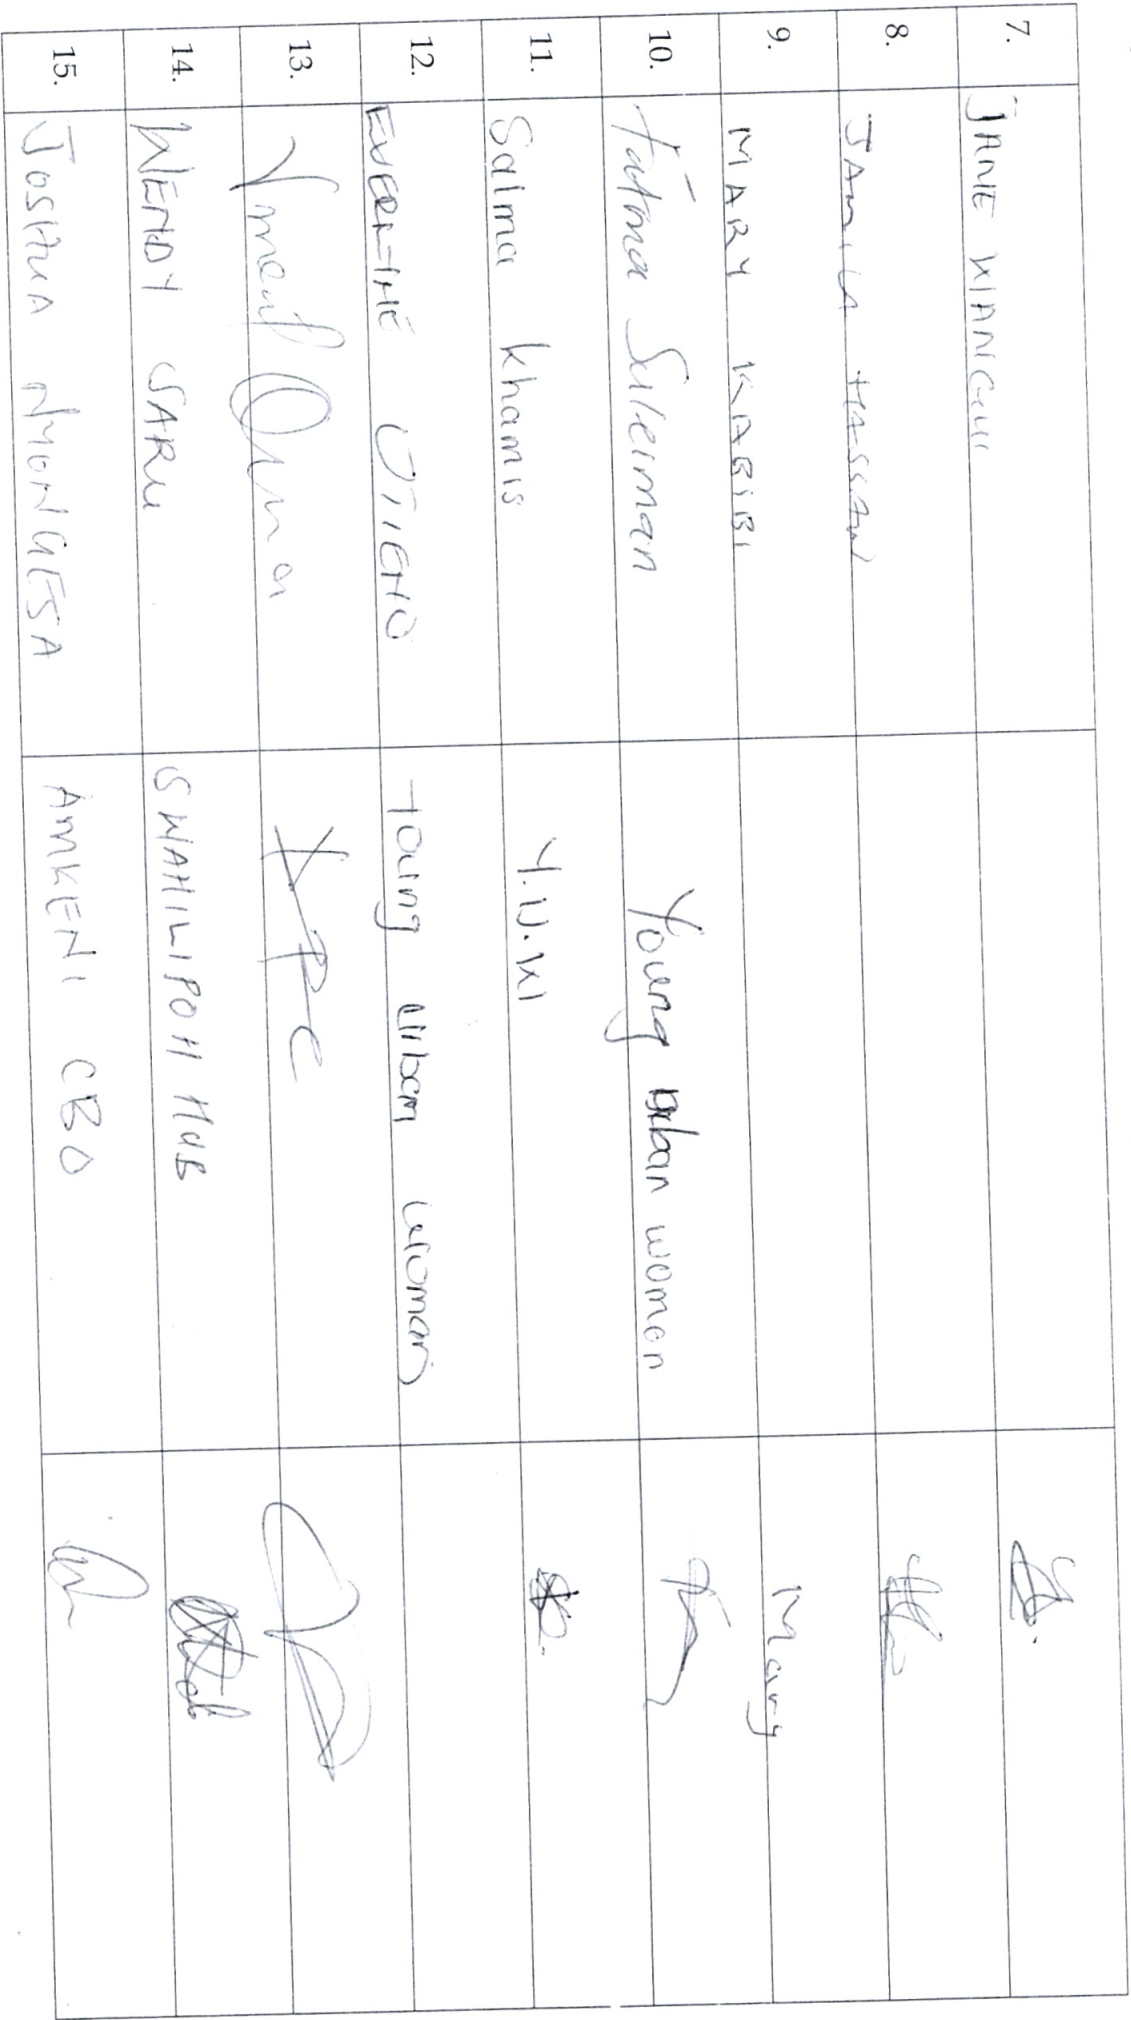 7. JANE WANGUI
8. JAMILA HASSAN
9. MARY KABIBI Mary
10. Fatma Suleiman Young Urban women
11. Salma Khamis Y.U.W
12. EVERLINE OTIENO Young Urban woman
13. Omar
14. WENDY SARU SWAHILIPOH HUB
15. JOSHUA NYONGESA AMKENI CBO